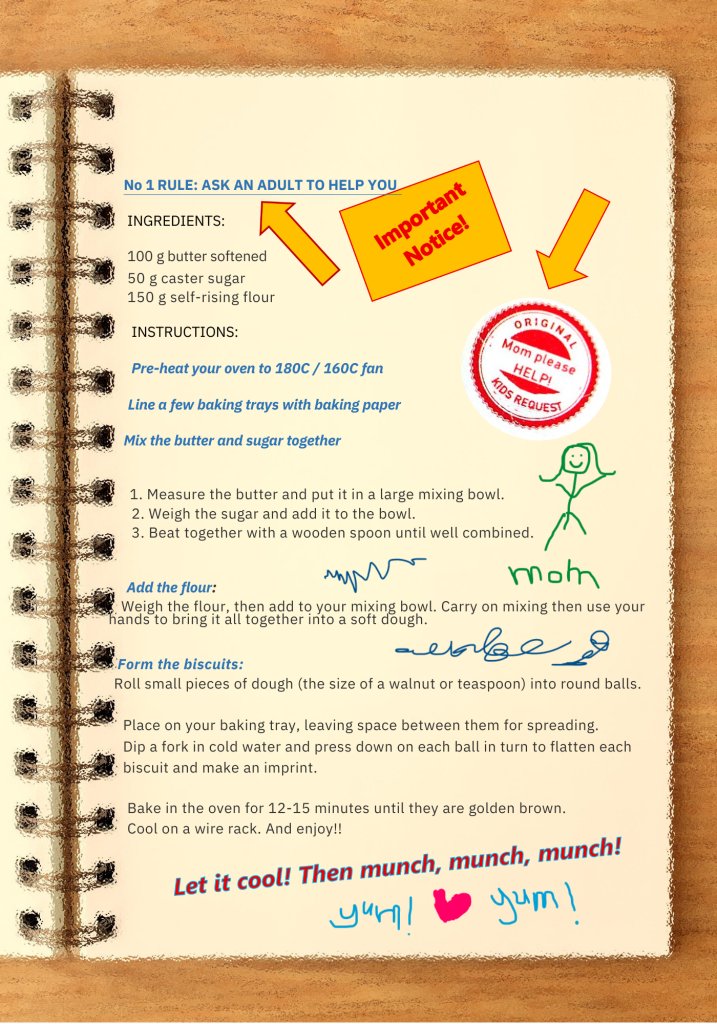 No 1 RULE: ASK AN ADULT TO HELP YOU
Important
Notice!
INGREDIENTS:
100 g butter softened
50 g caster sugar
150 g self-rising flour
ORIGINAL
Mom please
HELP!
KIDS REQUEST
INSTRUCTIONS:
Pre-heat your oven to 180C / 160C fan
Line a few baking trays with baking paper
Mix the butter and sugar together
1. Measure the butter and put it in a large mixing bowl.
2. Weigh the sugar and add it to the bowl.
3. Beat together with a wooden spoon until well combined.
mom
Add the flour:
Weigh the flour, then add to your mixing bowl. Carry on mixing then use your
hands to bring it all together into a soft dough.
Form the biscuits:
Roll small pieces of dough (the size of a walnut or teaspoon) into round balls.
Place on your baking tray, leaving space between them for spreading.
Dip a fork in cold water and press down on each ball in turn to flatten each
biscuit and make an imprint.
Bake in the oven for 12-15 minutes until they are golden brown.
Cool on a wire rack. And enjoy!!
Let it cool! Then munch, munch, munch!
yum! yum!